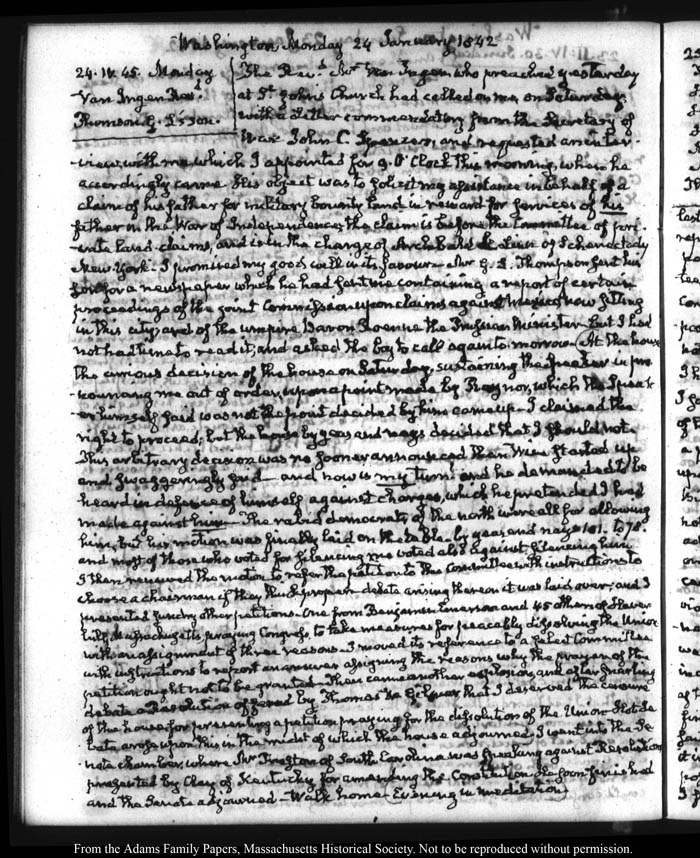 Washington Monday 24 January 1842
24. IV. 45. Monday
Van Ingen Rev.d
Thomson G.
The Rev.d Mr Van Ingen, who preached yesterday
at St. John's Church had called on me, on Saturday
with a Letter commendatory from the Secretary of
War John C. Spencer, and requested an inter-
view with me, which I appointed for 9. O'Clock this morning, when he
accordingly came. His object was to solicit my assistance in behalf of a
claim of his father for military bounty land in reward for services of his
father in the War of Independence; the claim is before the Committee of pri-
-vate land claims, and is in the charge of Archibald L. Linn of Schenectady
New-York. I promised my good will in its favour. Mr G. Thompson sent his
son for a newspaper which he had sent me containing a report of certain
proceedings of the joint Commission upon claims against Mexico now sitting
in this city; and of the umpire Baron Roenne the Prussian Minister but I had
not had time to read it, and asked the boy to call again to-morrow. At the house
the curious decision of the house on Saturday, sustaining the Speaker in pro-
-nouncing me out of order, upon a point made by Raynor, which the Speak-
er himself said was not the point decided by him came up. I claimed the
right to proceed; but the house by yeas and nays decided that I should not.
This arbitrary decision was no sooner announced than Wise started up
and swaggeringly said and now is my turn and he demanded to be
heard in defence of himself against charges, which he pretended I had
made against him. The rabid democrats of the north were all for allowing
him, but his motion was finally laid on the table by yeas and nays 101. to 78.
and most of those who voted for silencing me voted also against silencing him
I then renewed the motion to refer the petition to the Committee with instructions to
choose a chairman if they think proper debate arising thereon it was laid over; and I
presented sundry other petitions. One from Benjamin Emerson and 45 others of Haver-
hill, Massachusetts praying Congress, to take measures for peaceably dissolving the Union
with an assignment of three reasons. I moved its reference to a select Committee
with instructions to report an answer assigning the reasons why the prayer of the
petition ought not to be granted. Then came another explosion, and after snarling
debate a Resolution offered by Thomas W. Gilmer, that I deserved the censure
of the house for presenting a petition praying for the dissolution of the Union. Hot de-
bate arose upon this in the midst of which the house adjourned. I went into the Se-
nate chamber, where Mr Preston of South Carolina was speaking against Resolutions
presented by Clay of Kentucky for amending the Constitution. He soon finished
and the Senate adjourned. Walk home. Evening in meditation
From the Adams Family Papers, Massachusetts Historical Society. Not to be reproduced without permission.